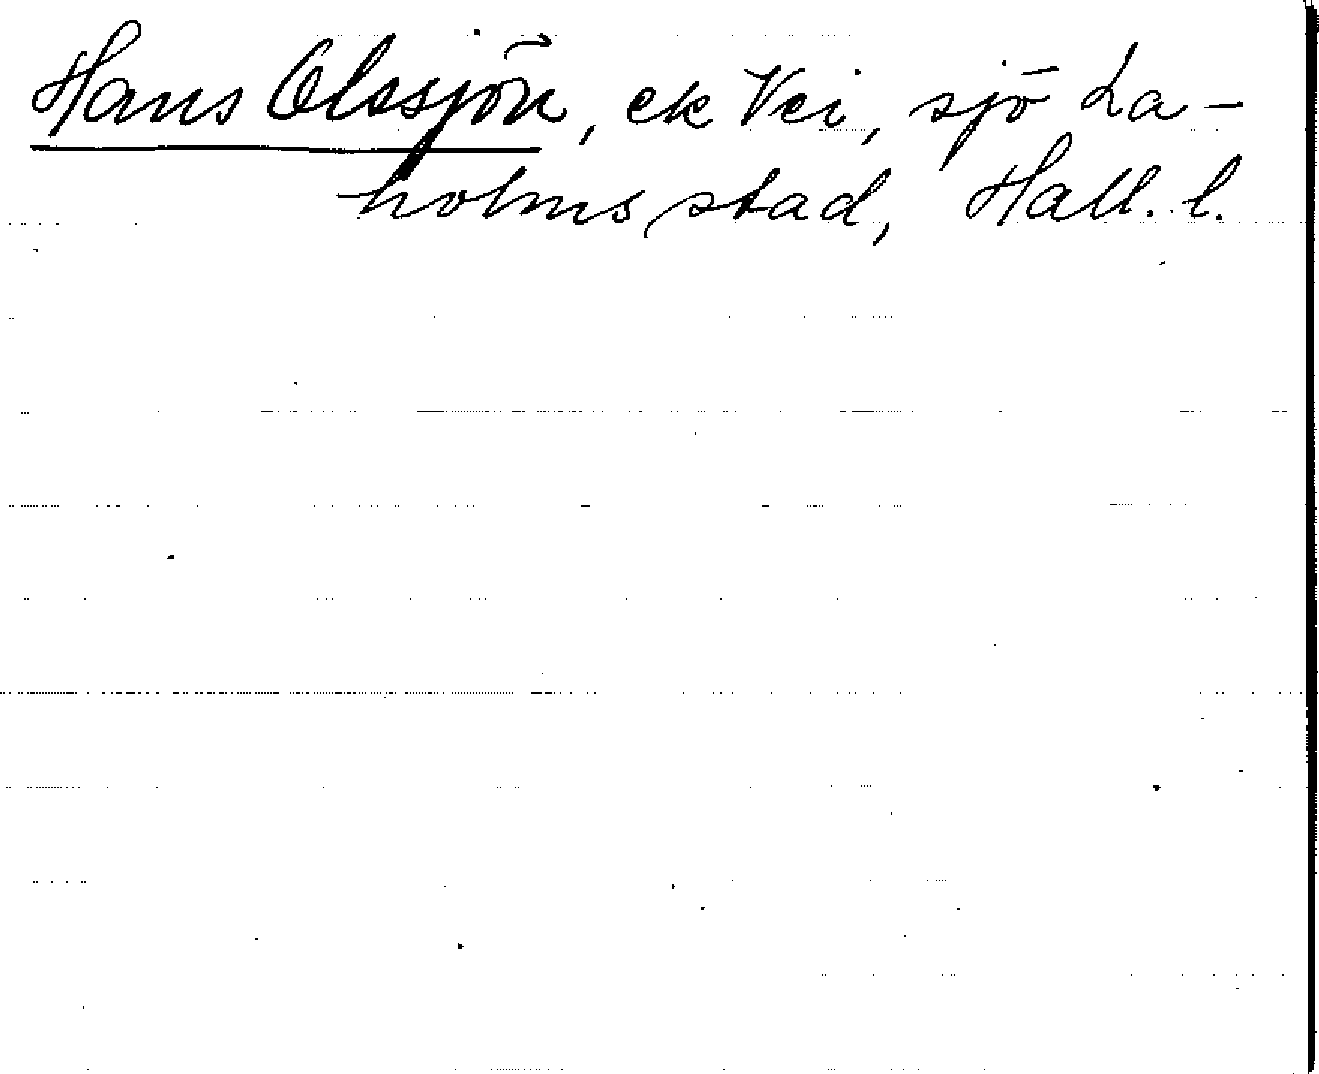 Hans Olssjön, ek Vei, sjö La-
holms stad, Hall. l.